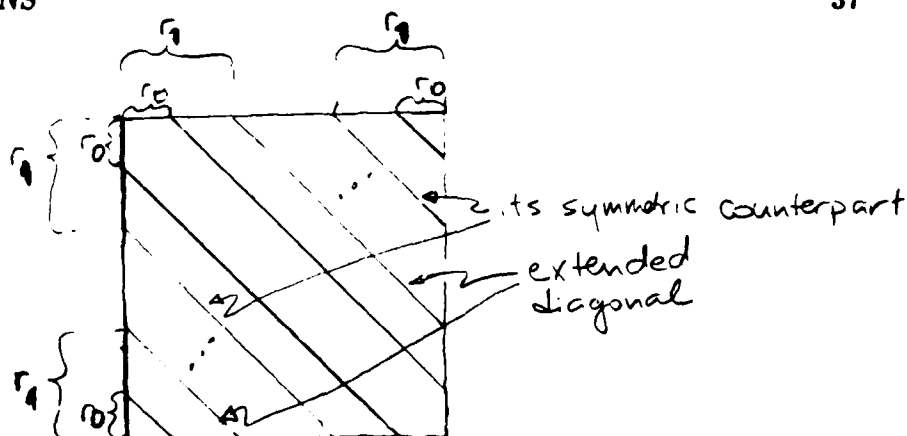 NS 37
r1 r1
r0 r0
r0
r1
its symmetric counterpart
extended
diagonal
r1
r0